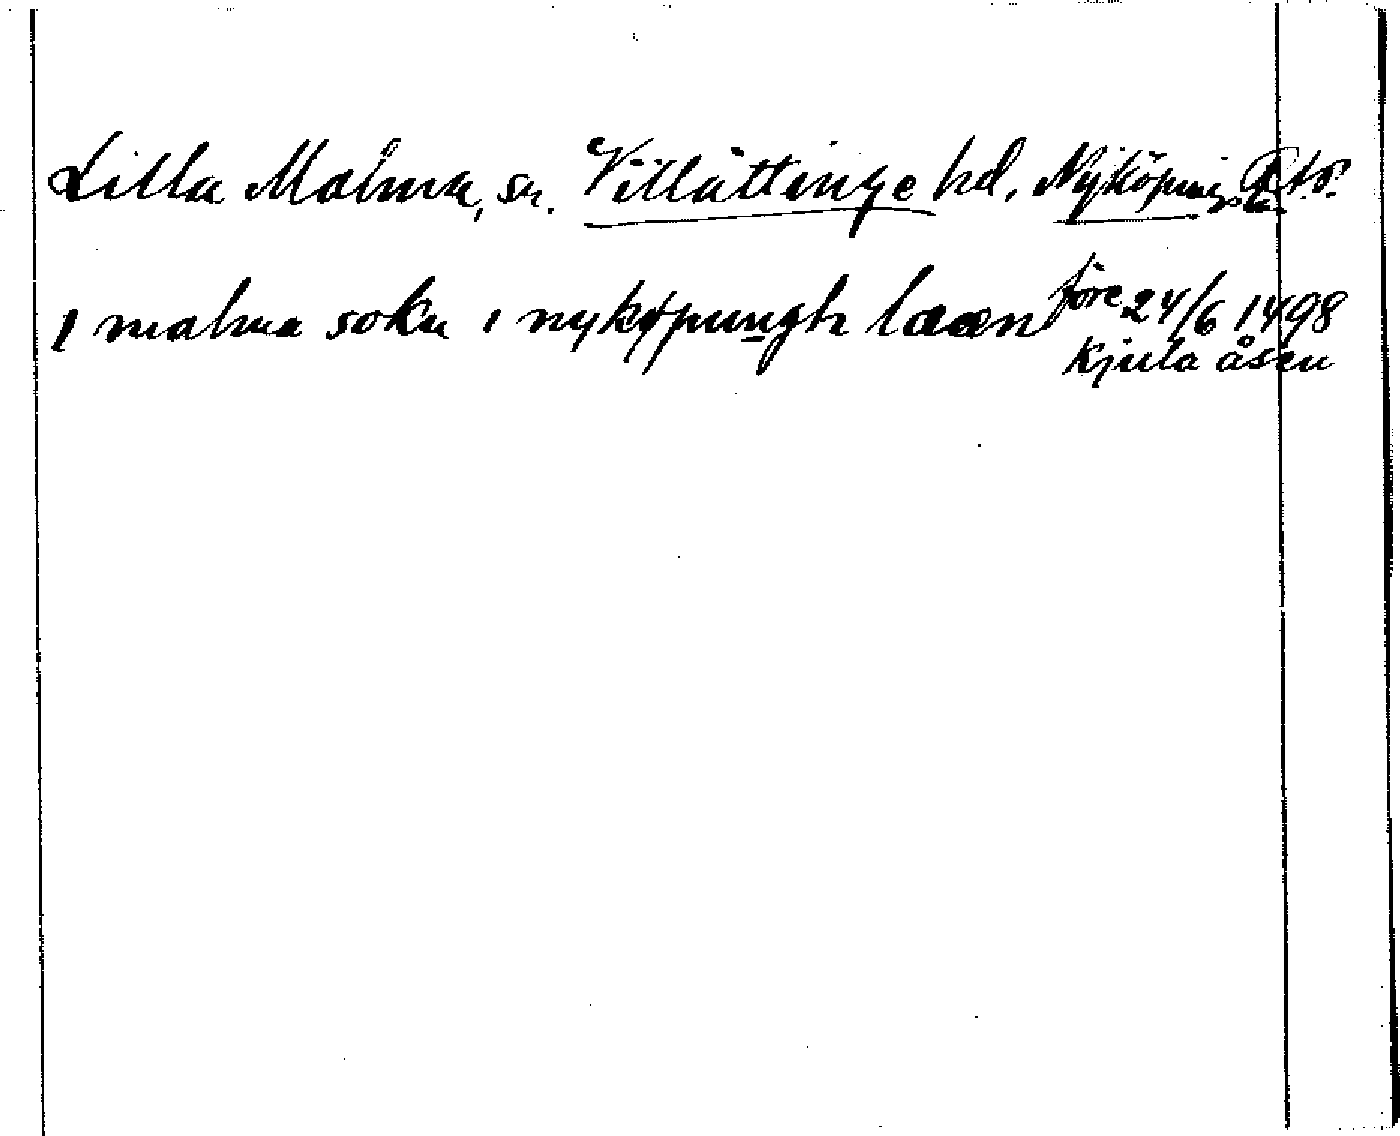 Lilla Malma, sn. Villåttinge hd, Nyköpings
I malma sokn i nykøpungh læen före 24/6 1498
Kjula åsen